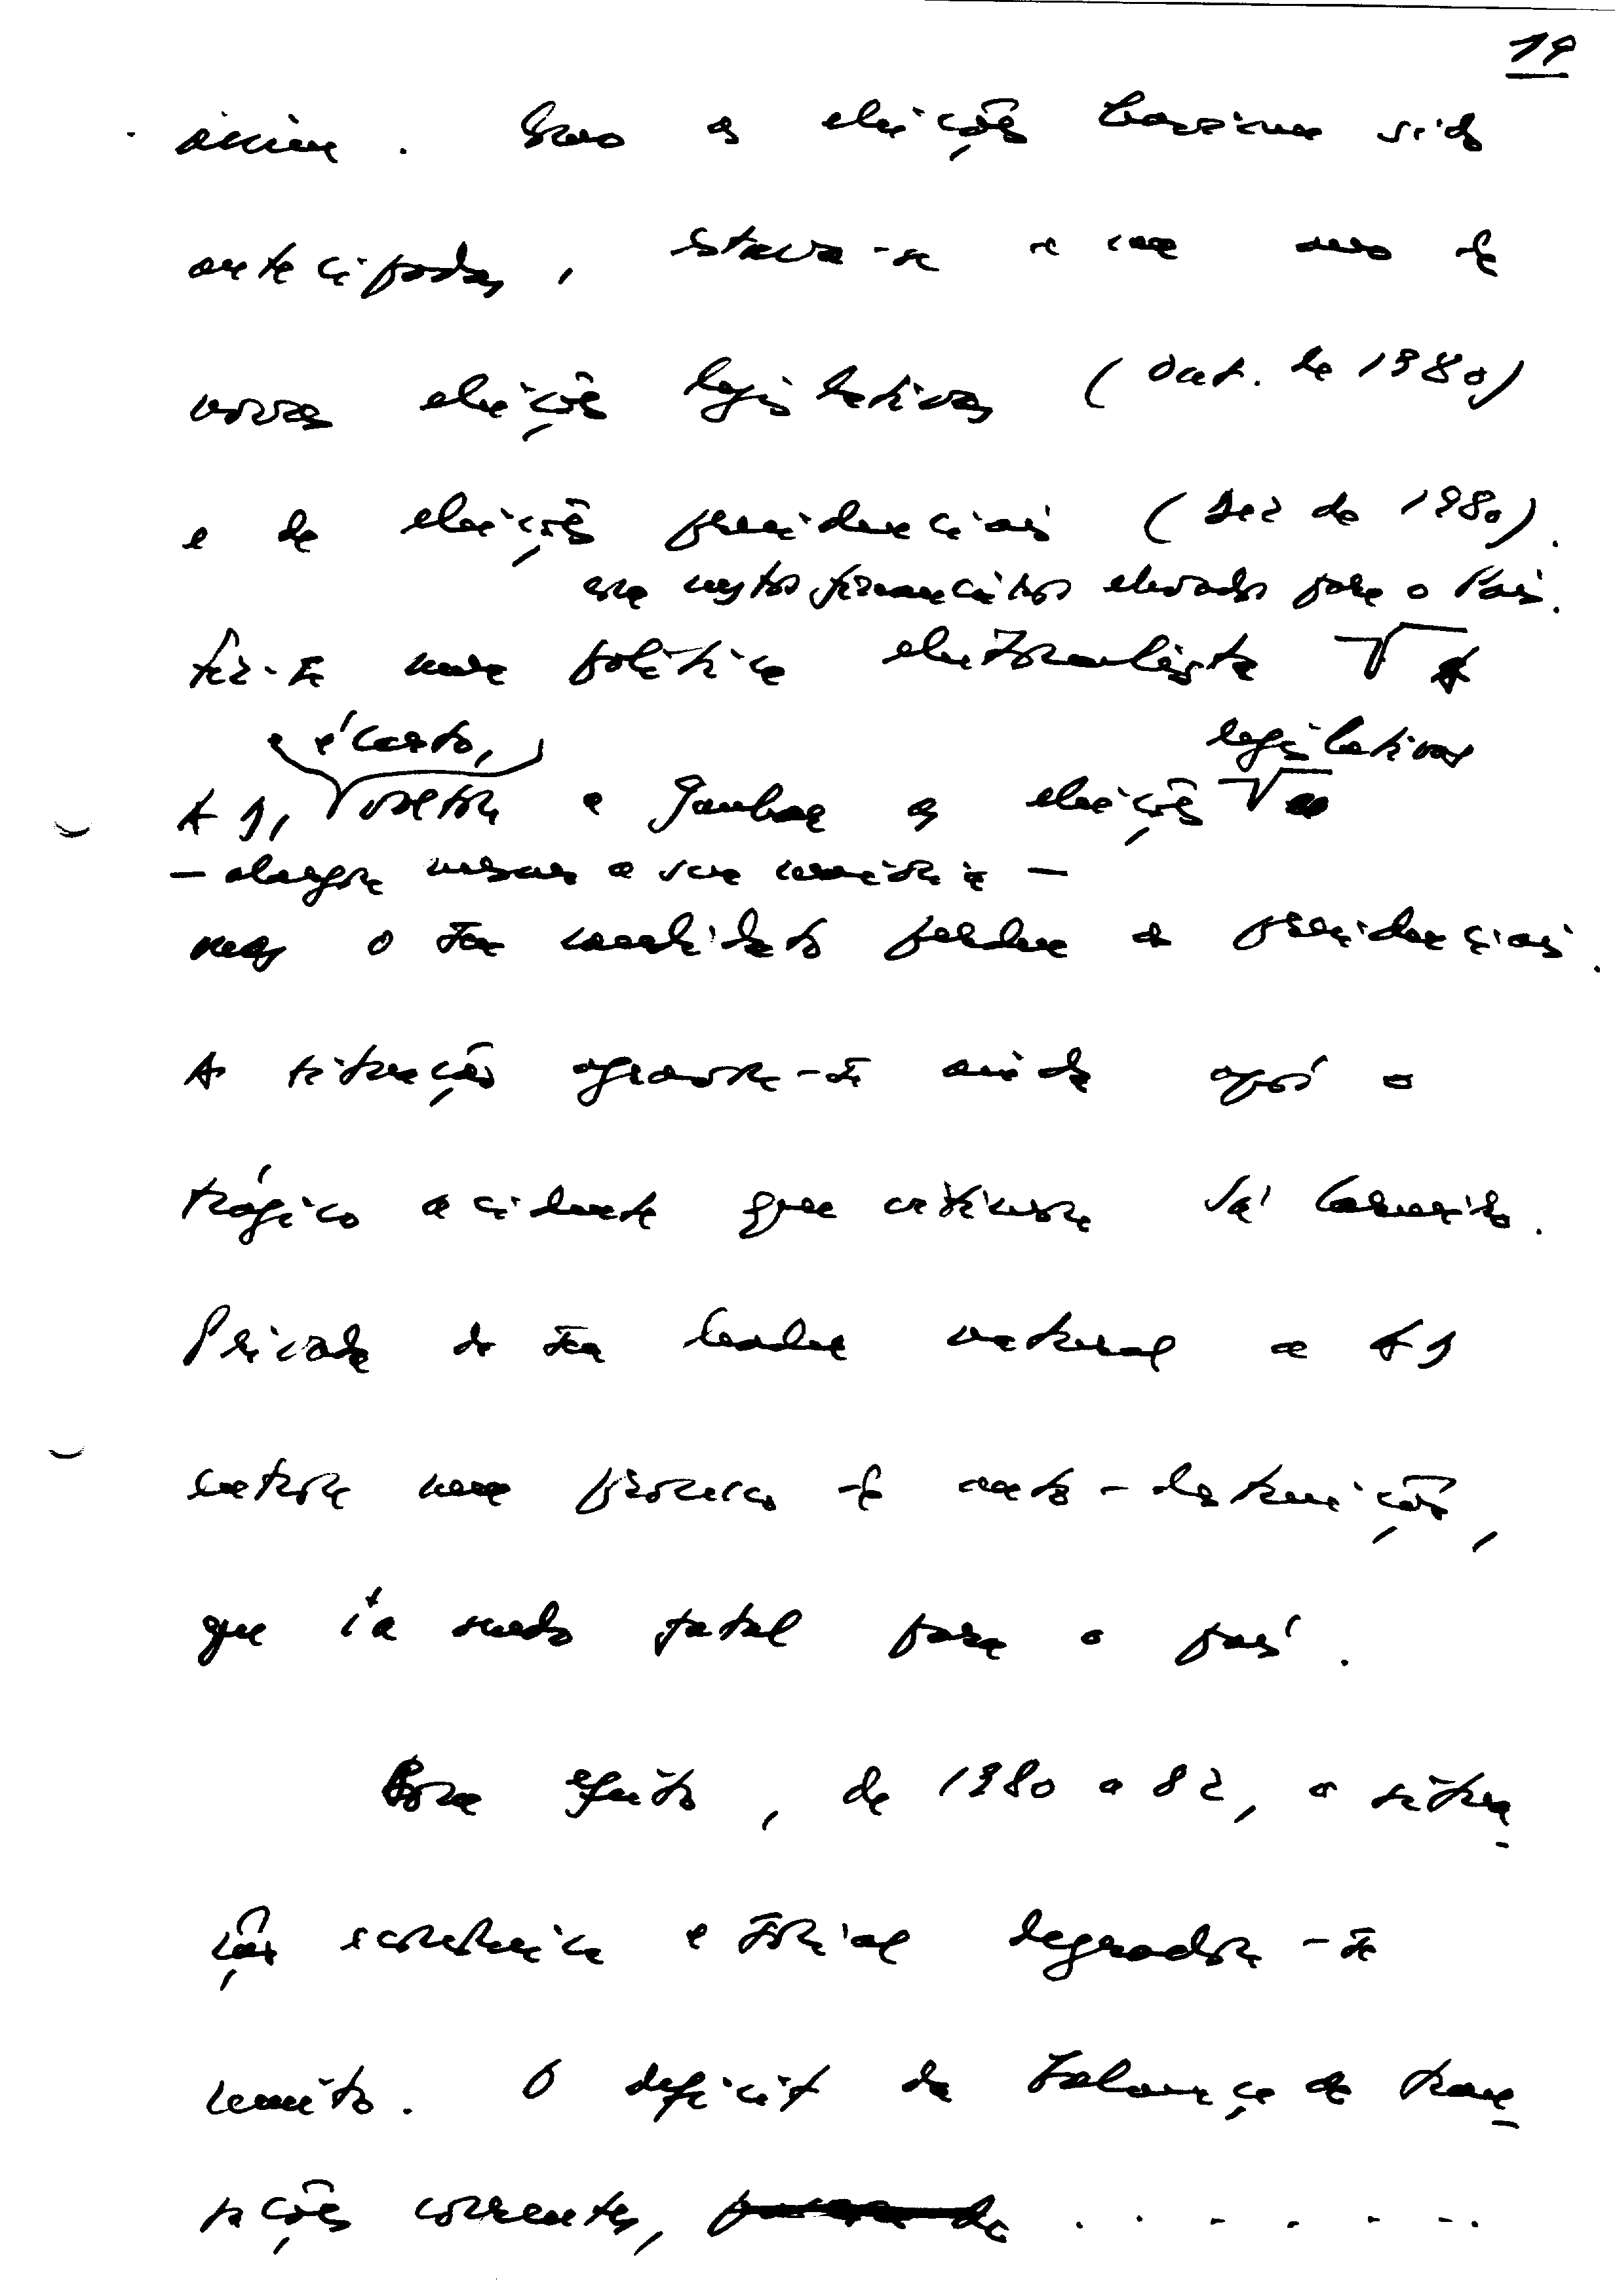 19
assim. Como as eleições haviam sido
antecipadas, estava-se a um ano de
novas eleições legislativas (Out. de 1980)
e de eleições presidenciais (Dez de 1980).
com custos financeiros elevados para o País.
Fez-se uma política eleitoralista
e é certo,
A AD, voltou a ganhar as eleições
legislativas
- alargou mesmo a sua maioria -
mas o seu candidato perdeu as presidenciais.
A situação agravou-se ainda após o
trágico acidente que vitimou Sá Carneiro.
Privada do seu leader natural a AD
entrou num processo de auto-destruição,
que ia sendo fatal para o país.
Com efeito, de 1980 a 82, a situa-
ção económica e social degradou-se
muito. O deficit da balança de tran-
sações correntes, . . . . . . .